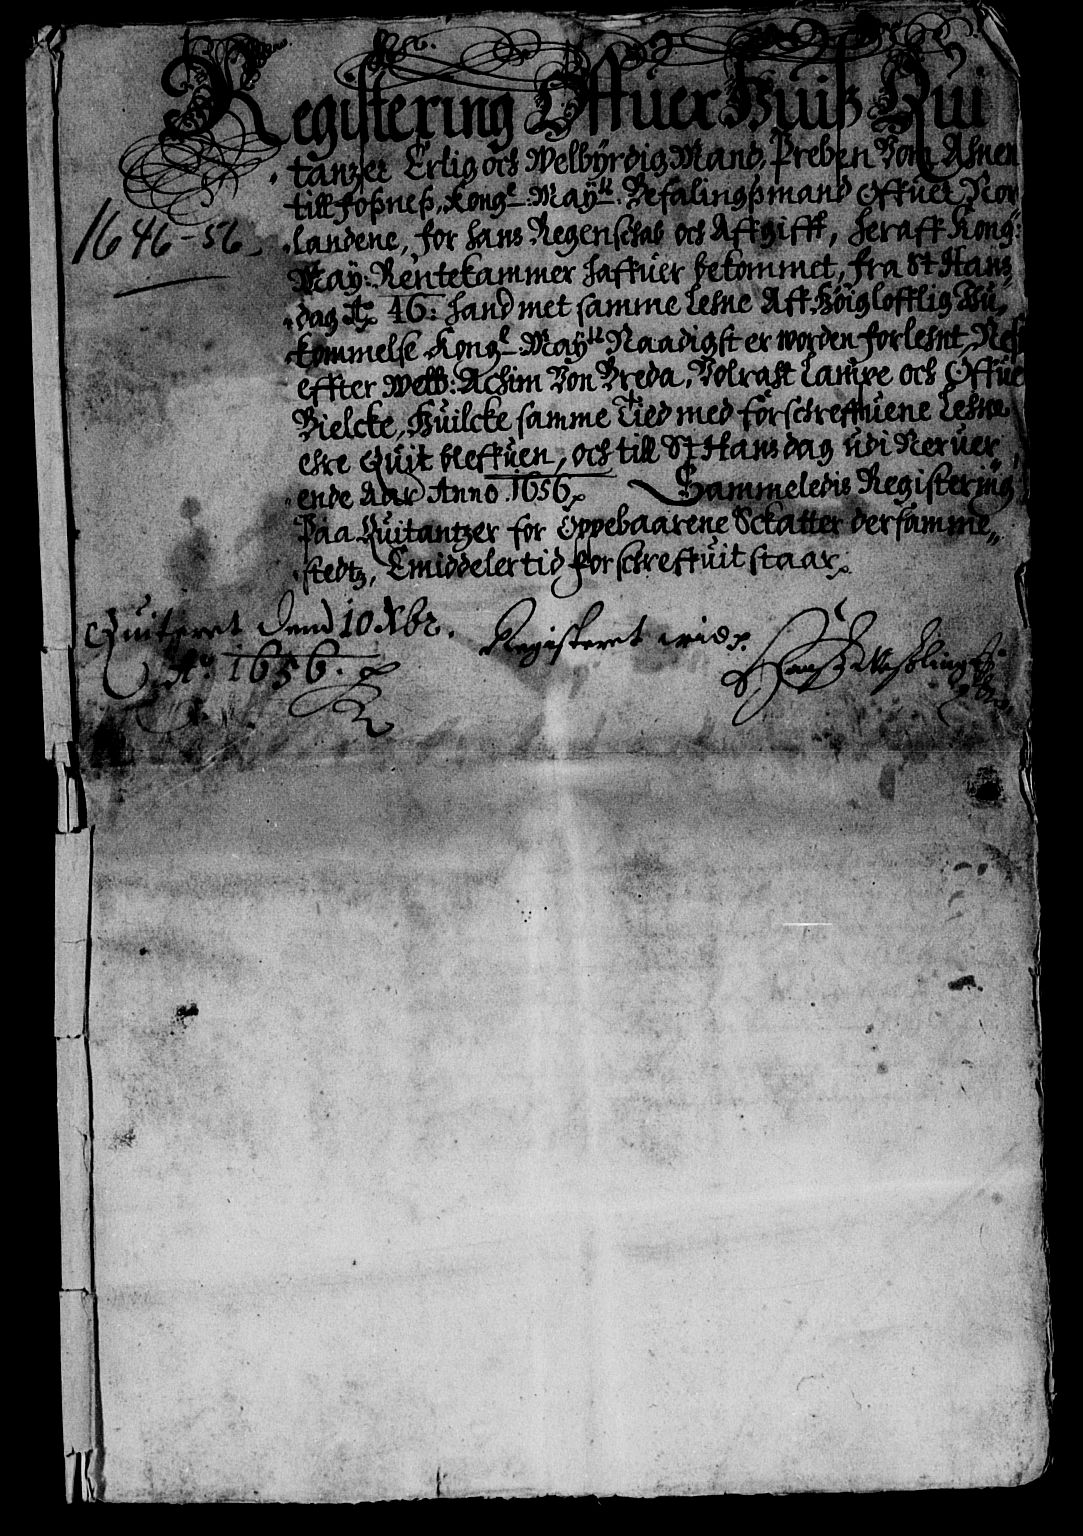 Registering Offuer Huiß Qui
tantzer Erlig och Welbÿrdig Mand, Preben Von Ahnen
till Foßneß, Kong: Maÿtz: Befalingßmand offuer Nor
1646-56
landene, for hans Regenschab och Affgifft, heraff Kong:
Maÿ: Rentekammer haffuer bekommet, fra St Hans
dag Ao 46: hand met samme Lehne Aff Höiglofflig Hu,,
kommelse Kongl: Maÿtt Naadigst er worden forlehnt, Nest
effter Welb: Achim Von Breda, Volraht Lampe och Offue
Bielcke, Huilcke samme Tied med forschreffuene Lehne
ehre Quit bleffuen, och till St Hans dag udi Neruer,,
ende Aar Anno 1656. Sammeledis Registering
Paa Quitantzer for Oppebaarene Sckatter dersamme,,
stedtz, Emiddelertid forschreffuit staar
Quiteret Dend 10 Xbr.
Ao 1656.
Registeret